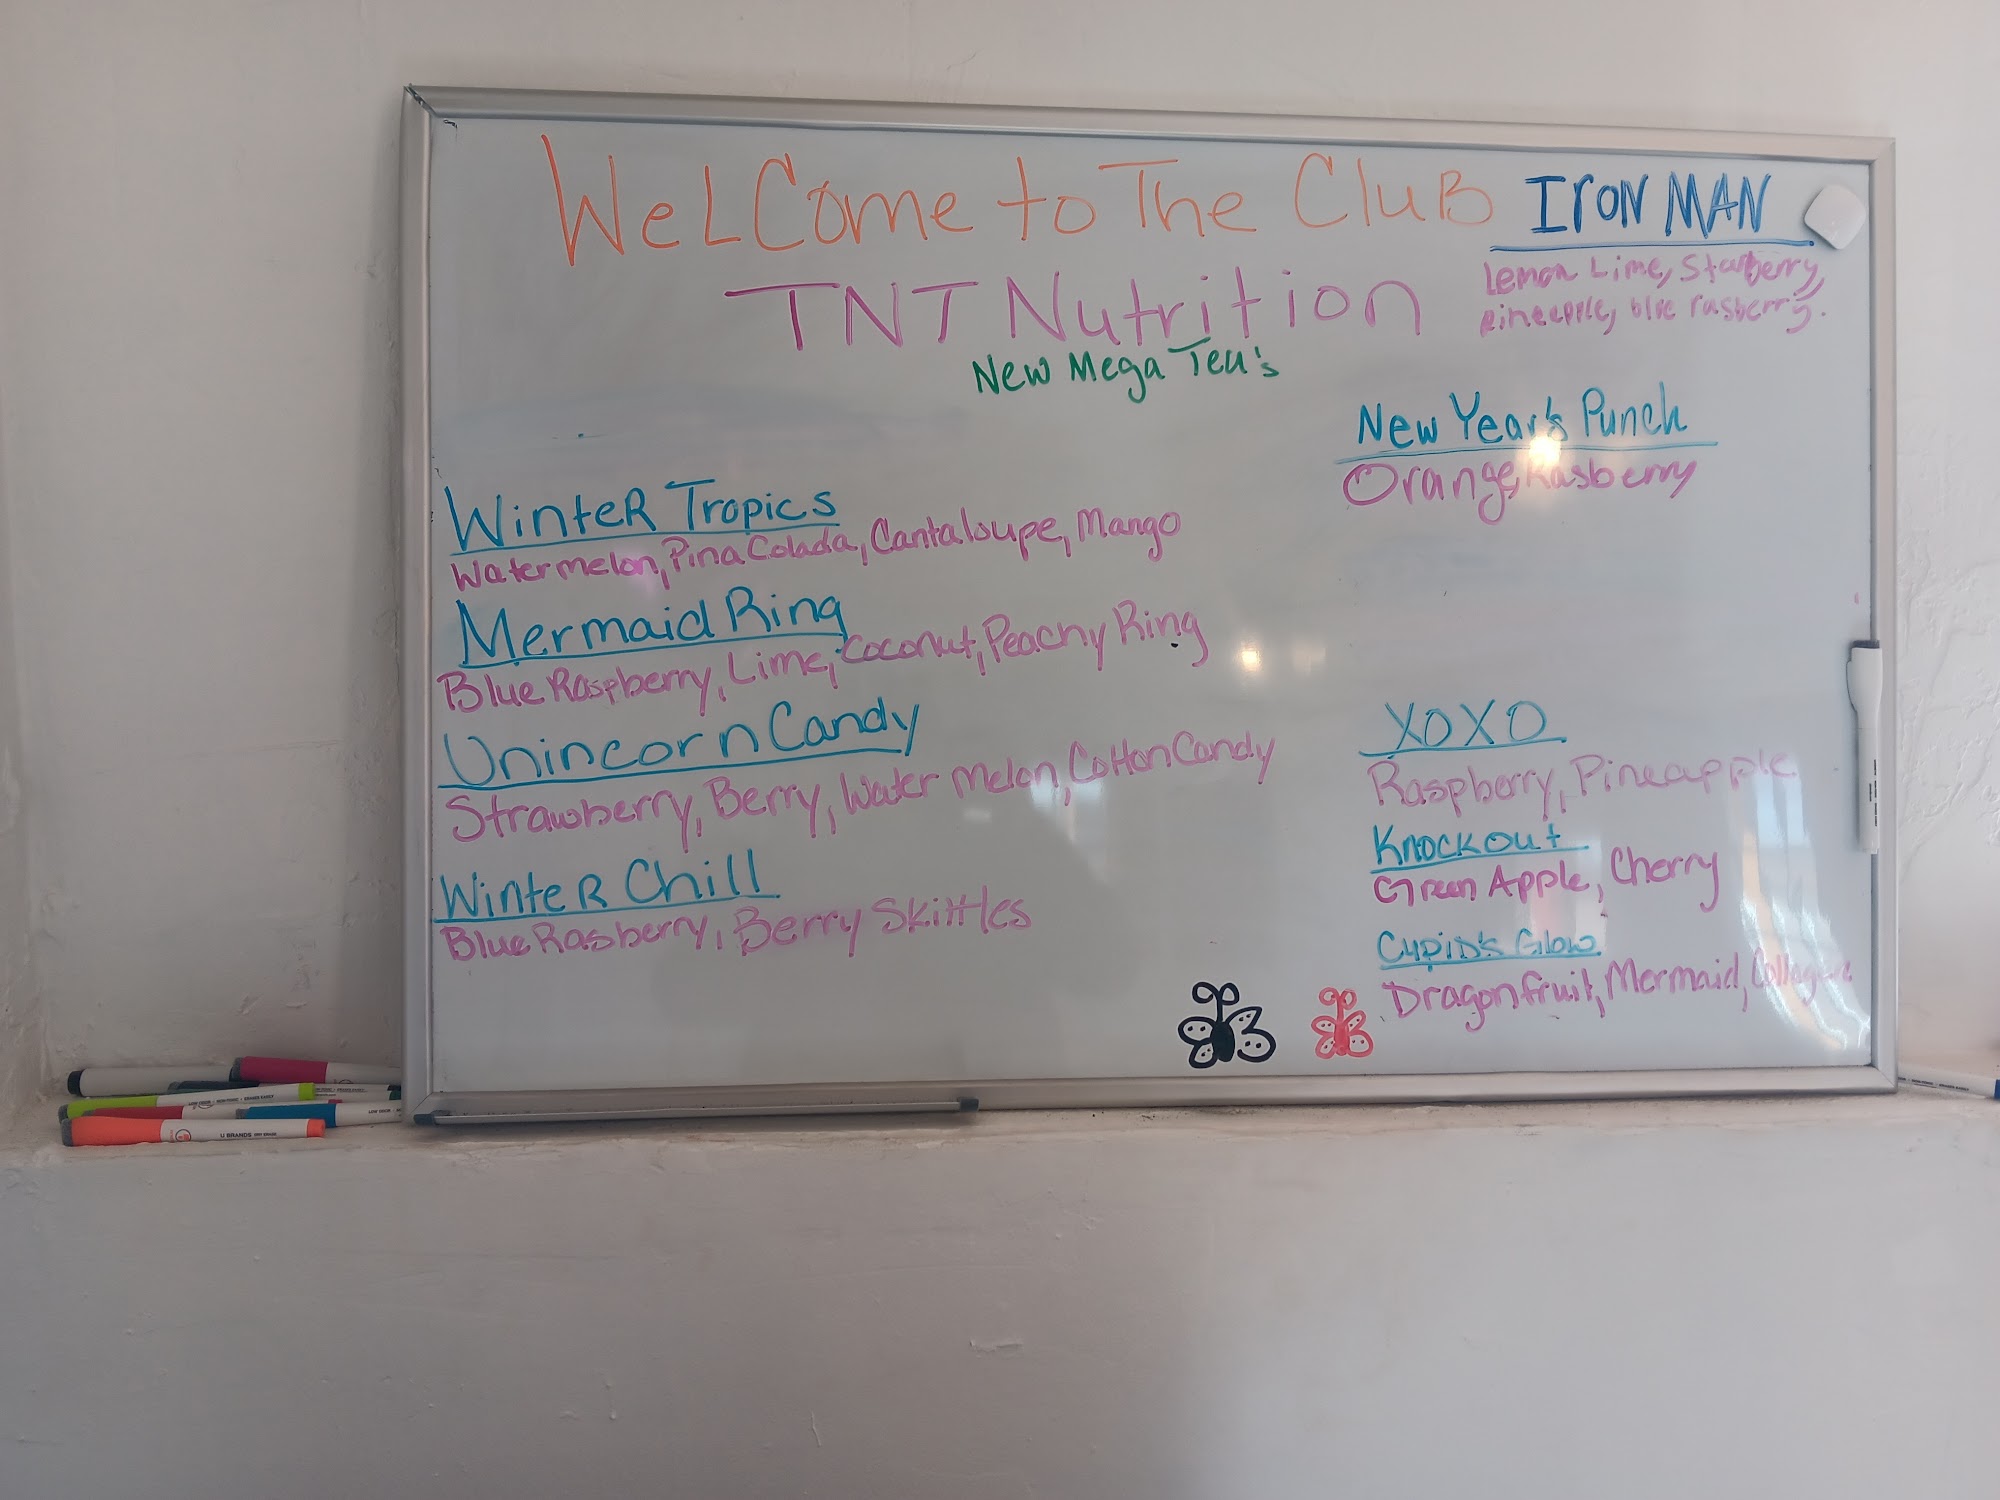 WeLCome to The CluB
TNT Nutrition
New Mega Tea's
IroN MAN
Lemon Lime, Starberry,
Pineapple, blue rasberry.
New Year's Punch
Orange, Rasberry
WinteR Tropics
Watermelon, Pina Colada, Cantaloupe, Mango
Mermaid Ring
Blue Raspberry, Lime, Coconut, Peachy Ring
Unincorn Candy
Strawberry, Berry, Water Melon, Cotton Candy
WinteR Chill
Blue Rasberry, Berry Skittles
XOXO
Raspberry, Pineapple
Knockout
Green Apple, Cherry
Cupid's Glow
Dragonfruit, Mermaid, Collagen
U BRANDS